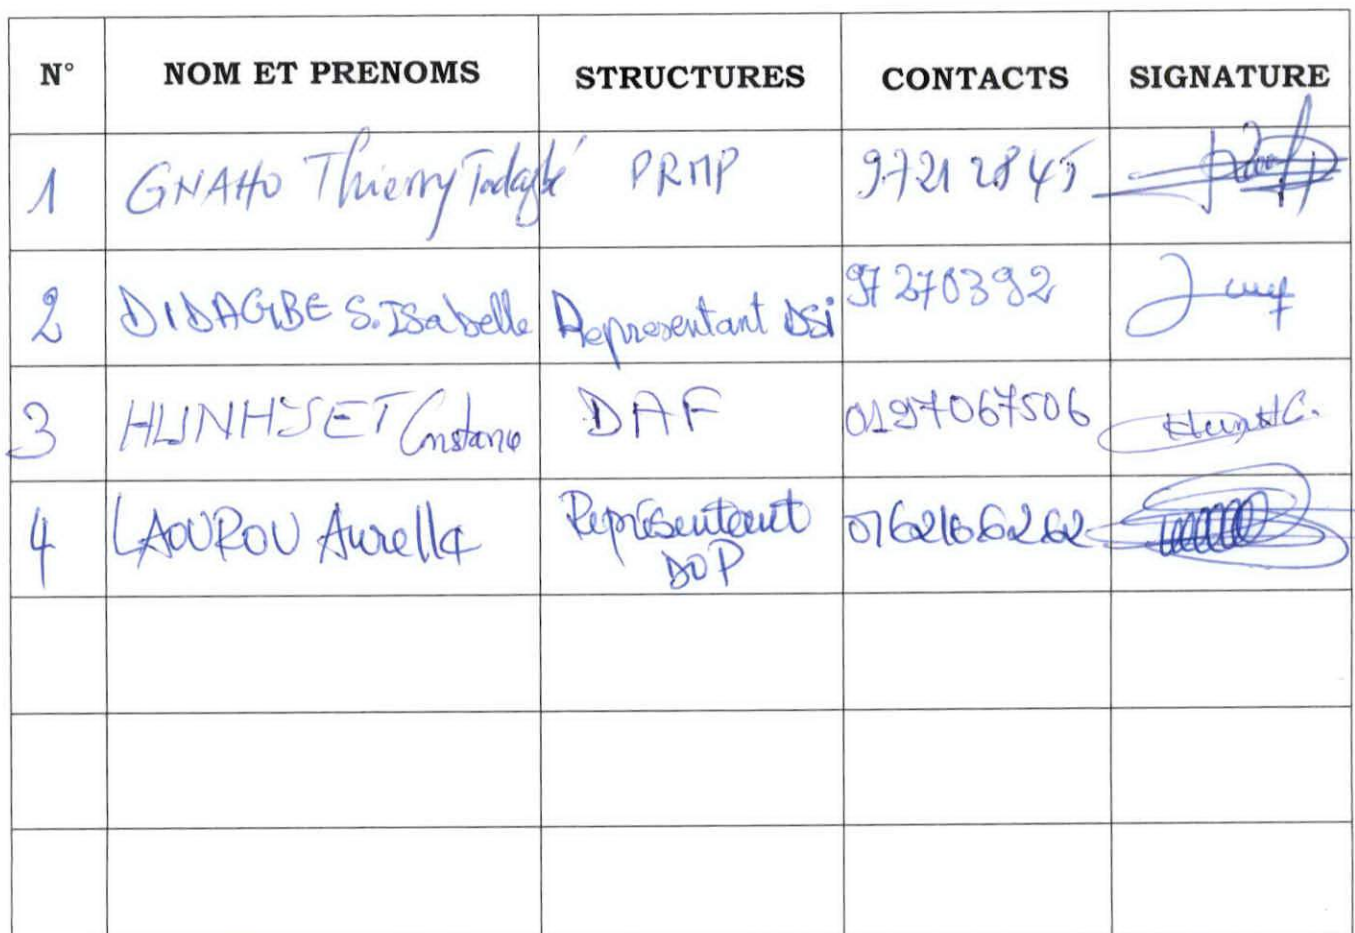 N° NOM ET PRENOMS STRUCTURES CONTACTS SIGNATURE
1 GNAHO Thierry Todagbé PRMP 97212845
2 DIDAGBE S. Isabelle Representant DSi 97270392
3 DAF 0197067506
4 LAOUROU Aurella Représentant 0162166262
DOP